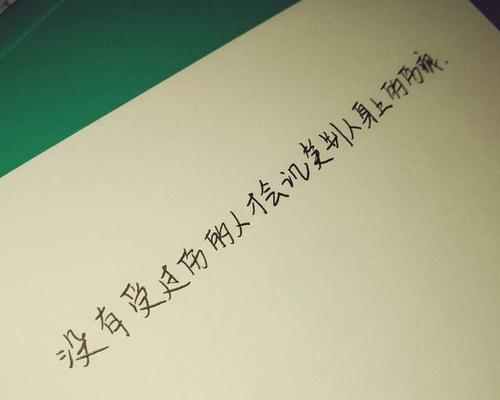 没有受过伤的人才会讥笑别人身上的伤痕.